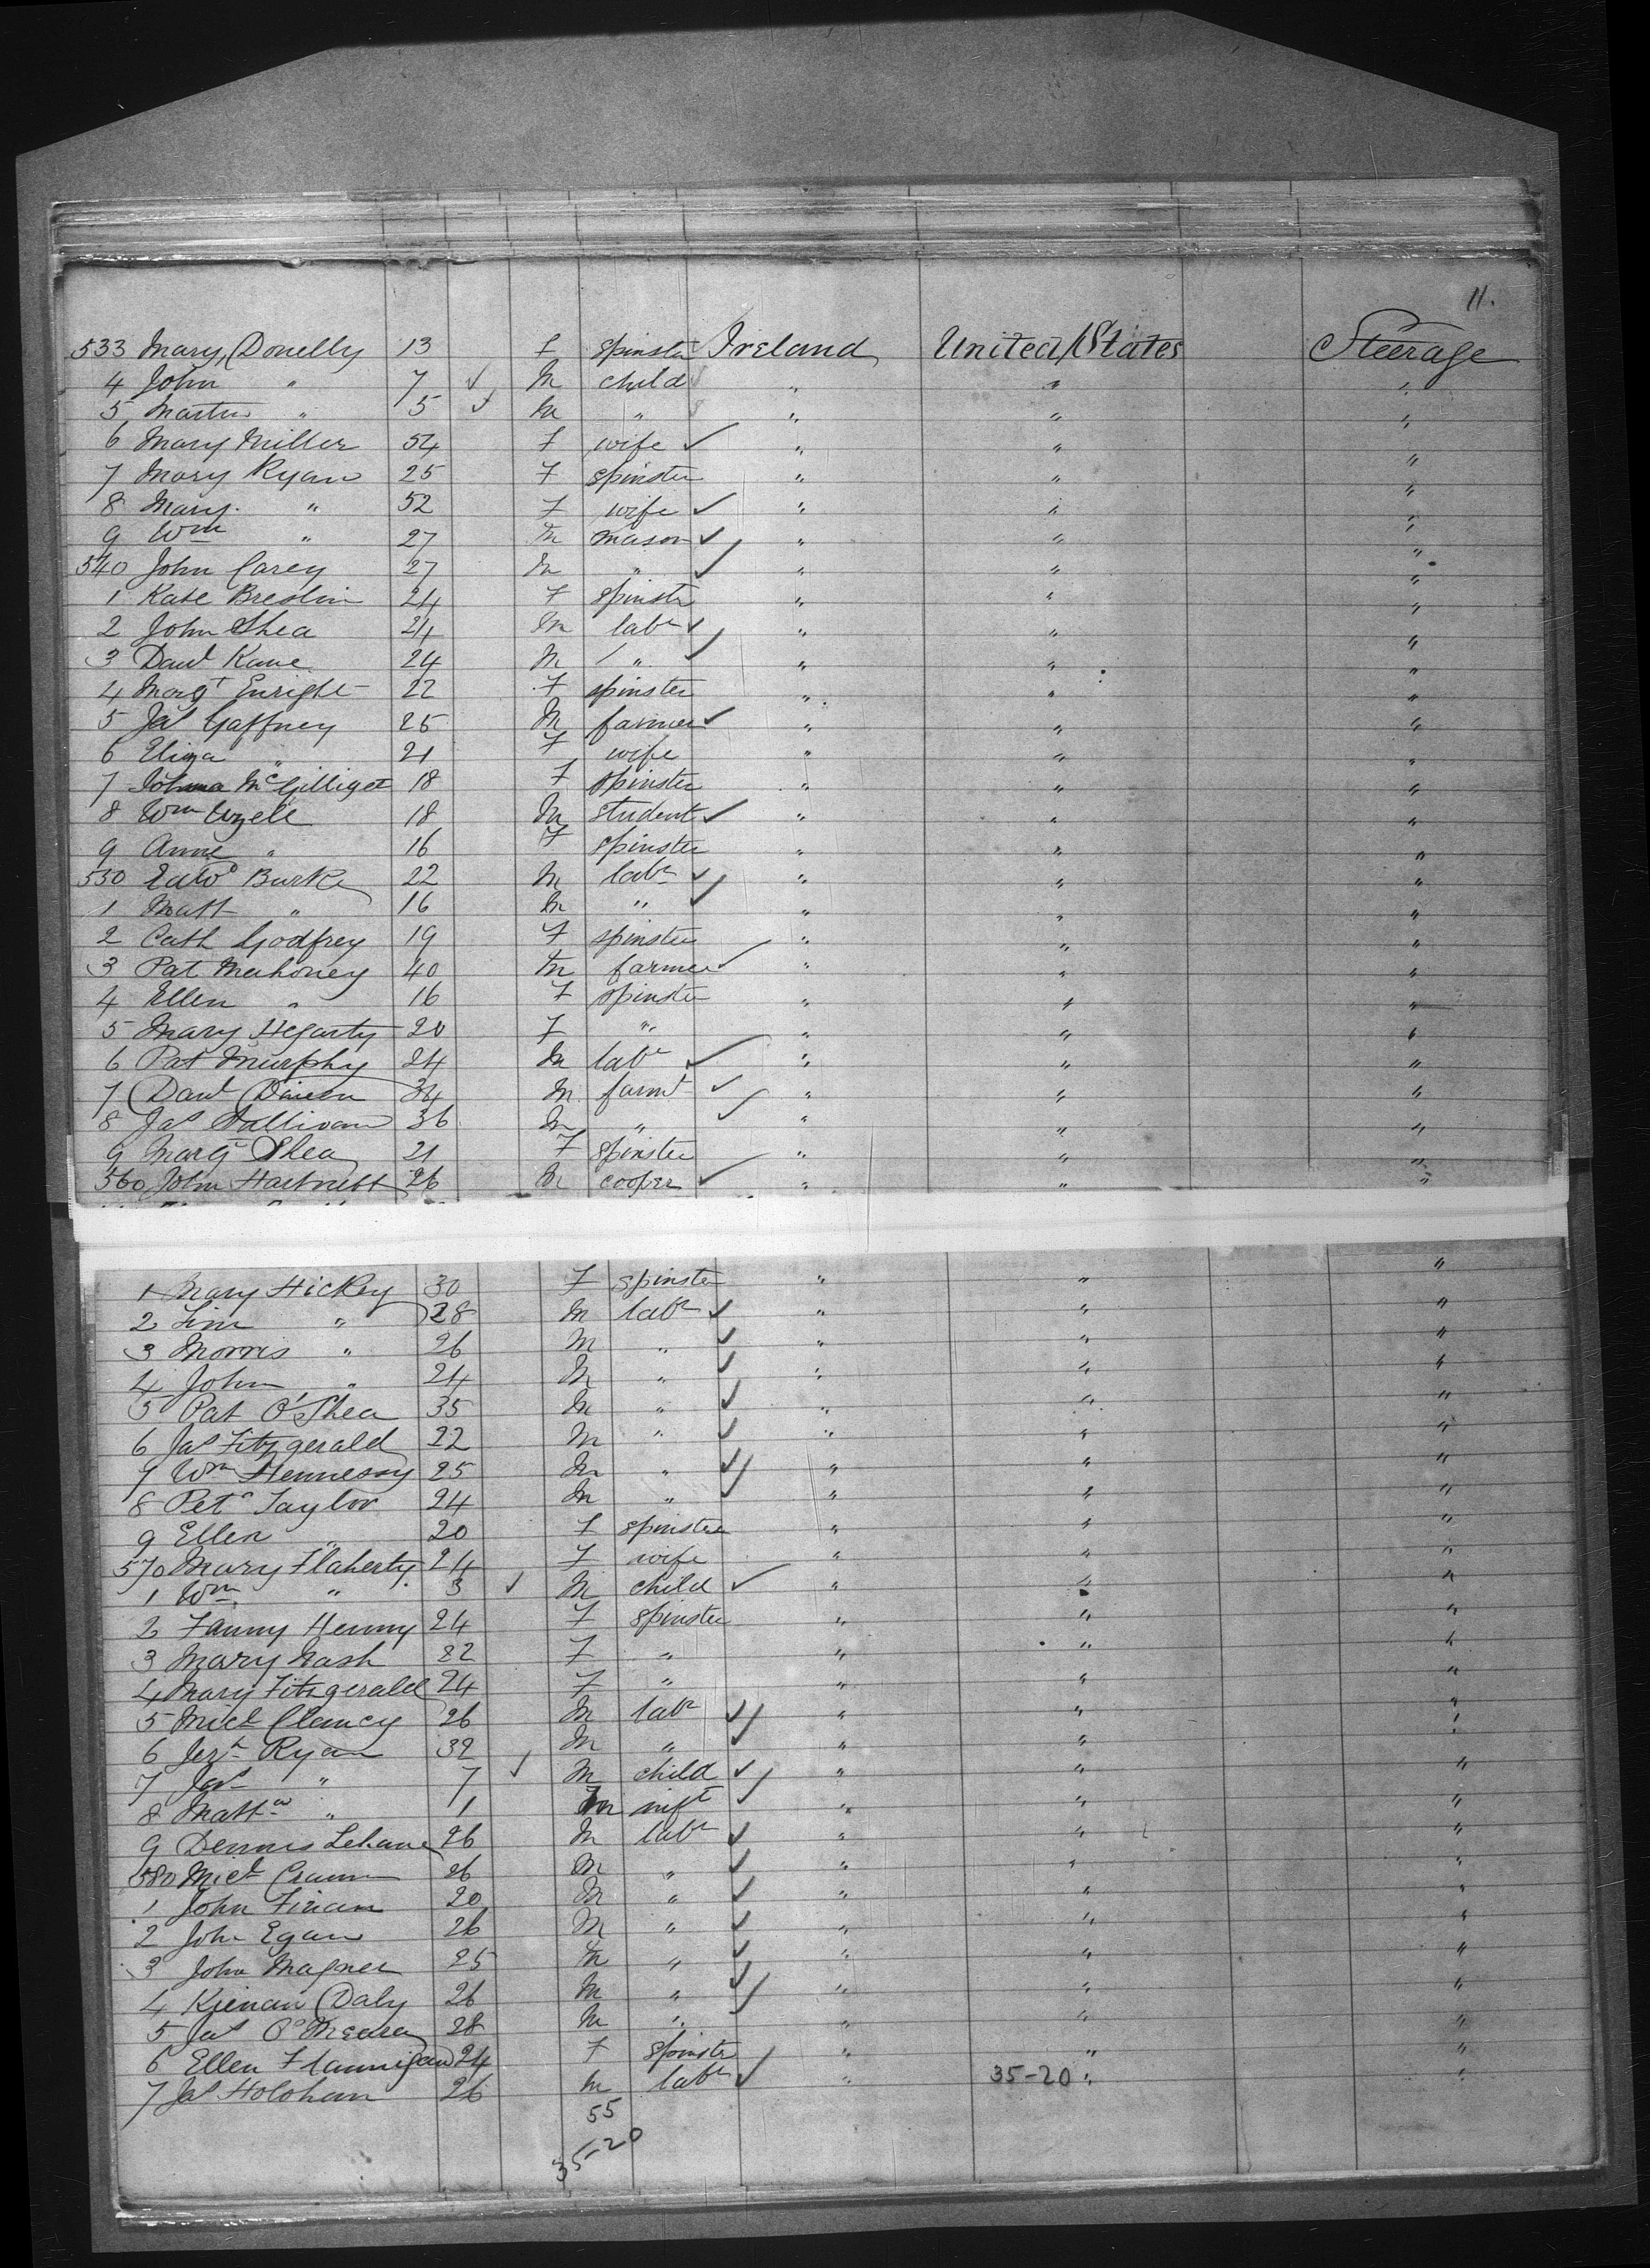 11.
533 Mary Donelly 13 f Spinstr Ireland United States Steerage
4 John " 7 ✓ M child " " "
5 Martin " 5 ✓ M " " " "
6 Mary Miller 54 F wife ✓ " " "
7 Mary Ryan 25 F spinster " " "
8 Mary " 52 F wife ✓ " " "
9 Wm " 27 M mason ✓ " " "
540 John Carey 27 M " ✓ " " "
1 Kate Breslin 24 F spinstr " " "
2 John Shea 24 M labr ✓ " " "
3 Danl Kane 24 M " ✓ " " "
4 Margt Enright 22 F spinster " " "
5 Jas Gaffney 25 M farmer ✓ " " "
6 Eliza " 21 F wife " " "
7 Johana McGilligot 18 F spinster " " "
8 Wm Uzell 18 M student ✓ " " "
9 Anne " 16 F spinster " " "
550 Edwd Burke 22 M labr ✓ " " "
1 Matt " 16 M " ✓ " " "
2 Cath Godfrey 19 F spinster " " "
3 Pat Mahoney 40 M farmer ✓ " " "
4 Ellen " 16 F spinster " " "
5 Mary Hegarty 20 F " " " "
6 Pat Murphy 24 M labr ✓ " " "
7 Danl 34 M farmr ✓ " " "
8 Jas Sullivan 36 M " ✓ " " "
9 Margt Shea 21 F spinster " " "
560 John Hartnett 26 M cooper ✓ " " "
1 Mary Hickey 30 F spinster " " "
2 Tim " 28 M labr ✓ " " "
3 Morris " 26 M " ✓ " " "
4 John " 24 M " ✓ " " "
5 Pat O'Shea 35 M " ✓ " " "
6 Jas Fitzgerald 22 M " ✓ " " "
7 Wm Hennessy 25 M " ✓ " " "
8 Petr Taylor 24 M " ✓ " " "
9 Ellen " 20 F spinster " " "
570 Mary Flaherty 24 F wife " " "
1 Wm " 3 ✓ M child ✓ " " "
2 Fanny Henny 24 F spinster " " "
3 Mary Nash 82 F " " " "
4 Mary Fitzgerald 24 F " " " "
5 Michl Clancy 26 M labr ✓ " " "
6 Jerh Ryan 32 M " ✓ " " "
7 Jas " 7 ✓ M child ✓ " " "
8 Mattw " 1 M inft ✓ " " "
9 Dennis Lehane 26 M labr ✓ " " "
580 Michl 26 M " ✓ " " "
1 John Finian 20 M " ✓ " " "
2 John Egan 26 M " ✓ " " "
3 John Magner 25 M " ✓ " " "
4 Kienan Daly 26 M " ✓ " " "
5 Jas O'Meara 28 M " ✓ " " "
6 Ellen Flannigan 24 F Spinster " " "
7 Jas Holohan 26 M labr ✓ " 35-20 " "
55
35-20